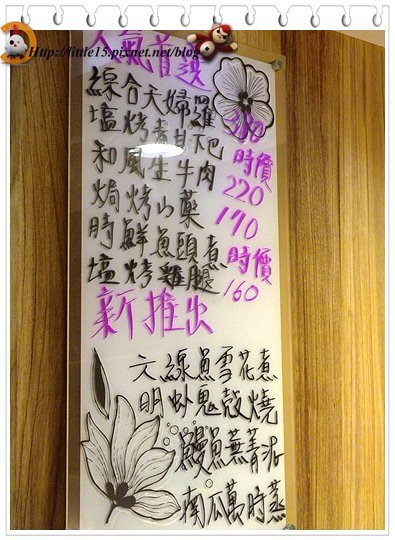 Http://little15.pixnet.net/blog
人氣首選
綜合天婦羅
塩烤青甘下巴 時價
和風生牛肉 220
焗烤山藥 190
時鮮魚頭煮 時價
塩烤雞腿 160
新推出
文線魚雪花煮
明虾鬼殼燒
鰻魚蕪菁泥
南瓜萬時蒸